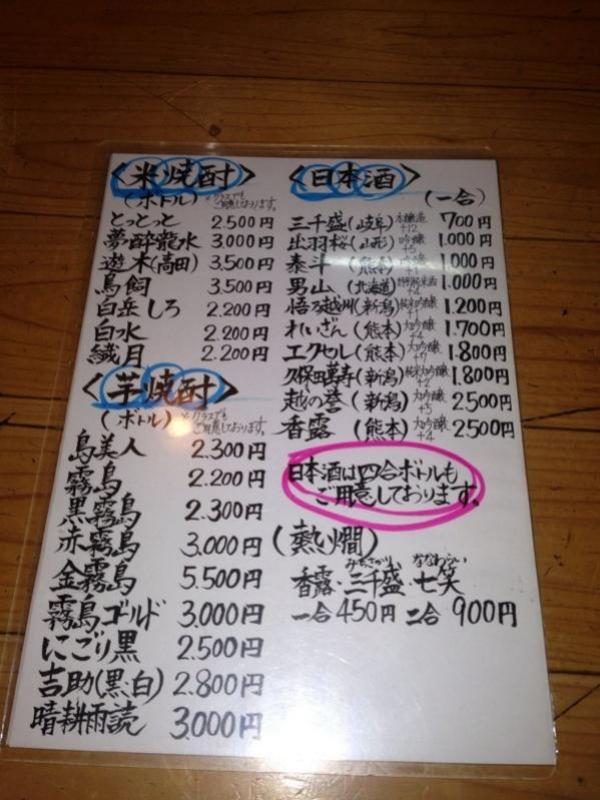 〈米焼酎〉
(ボトル) ※グラスでもご用意しております。
とっとっと 2.500円
夢酔龍水 3.000円
遊木(高田) 3.500円
鳥飼 3.500円
白岳しろ 2.200円
白水 2.200円
繊月 2.200円
〈芋焼酎〉
(ボトル) ※グラスでもご用意しております。
島美人 2.300円
霧島 2.200円
黒霧島 2.300円
赤霧島 3.000円
金霧島 5.500円
霧島ゴールド 3.000円
にごり黒 2.500円
吉助(黒・白) 2.800円
晴耕雨読 3.000円
〈日本酒〉
(一合)
三千盛(岐阜) 本醸造 +12 700円
出羽桜(山形) 吟醸 +5 1.000円
泰斗(熊本) 吟醸 1.000円
男山(北海道) 1.000円
悟乃越州(新潟) 純米吟醸 1.200円
れいざん(熊本) 大吟醸 1.700円
エクセル(熊本) 大吟醸 1.800円
久保田萬寿(新潟) 純米大吟醸 +2 1.800円
越の誉(新潟) 大吟醸 +5 2500円
香露(熊本) 大吟醸 +4 2500円
日本酒は四合ボトルも
ご用意しております。
(熱燗)
みちさかり ななわらい
香露・三千盛・七笑
一合450円 二合 900円